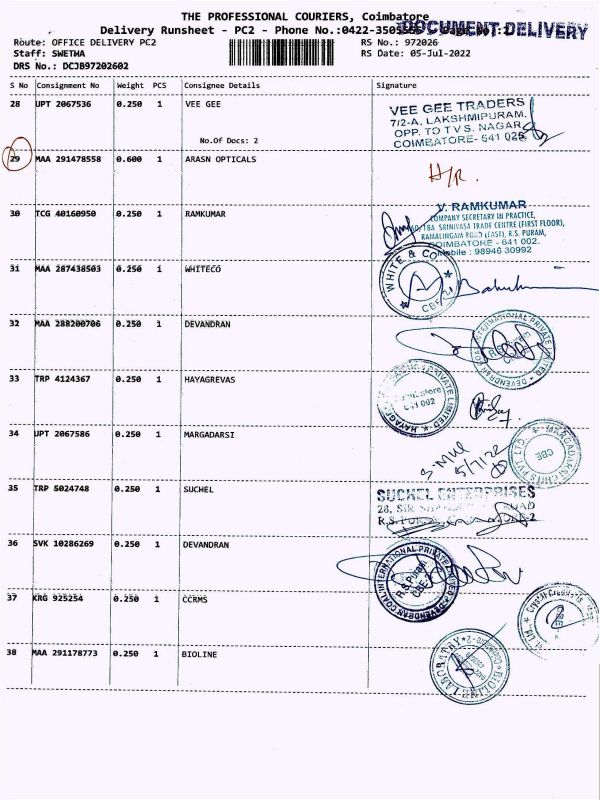 THE PROFESSIONAL COURIERS, Coimbatore
Delivery Runsheet - PC2 - Phone No.:0422-3505555
DOCUMENT DELIVERY
Route: OFFICE DELIVERY PC2
RS No.: 972026
Staff: SWETWA
RS Date: 05-Jul-2022
DRS No.: DCJB97202602
S No Consignment No Weight PCS Consignee Details Signature
28 UPT 2067536 0.250 1 VEE GEE
No.Of Docs: 2
VEE GEE TRADERS
7/2-A, LAKSHMIPURAM,
OPP. TO T V S. NAGAR,
COIMBATORE- 641 025
29 MAA 291478558 0.600 1 ARASN OPTICALS
H/R.
30 TCG 40160950 0.250 1 RAMKUMAR
V. RAMKUMAR
COMPANY SECRETARY IN PRACTICE,
SRINIVASA TRADE CENTRE (FIRST FLOOR),
RAMALINGAM ROAD (EAST), R.S. PURAM,
COIMBATORE - 641 002.
Mobile : 98946 30992
31 MAA 287438503 0.250 1 WHITECO
WHITE & CO
32 MAA 288200706 0.250 1 DEVANDRAN
33 TRP 4124367 0.250 1 HAYAGREVAS
641 002
34 UPT 2067586 0.250 1 MARGADARSI
5/7/22
MARGADARSI CHITS PVT LTD
CBE
35 TRP 5024748 0.250 1 SUCHEL
SUCHEL ENTERPRISES
36 SVK 10286269 0.250 1 DEVANDRAN
DEVENDRAN COAL INTERNATIONAL PRIVATE LIMITED
R.S Puram
CBE
37 KRG 925254 0.250 1 CCRMS
38 MAA 291178773 0.250 1 BIOLINE
BIOLINE LABORATORY